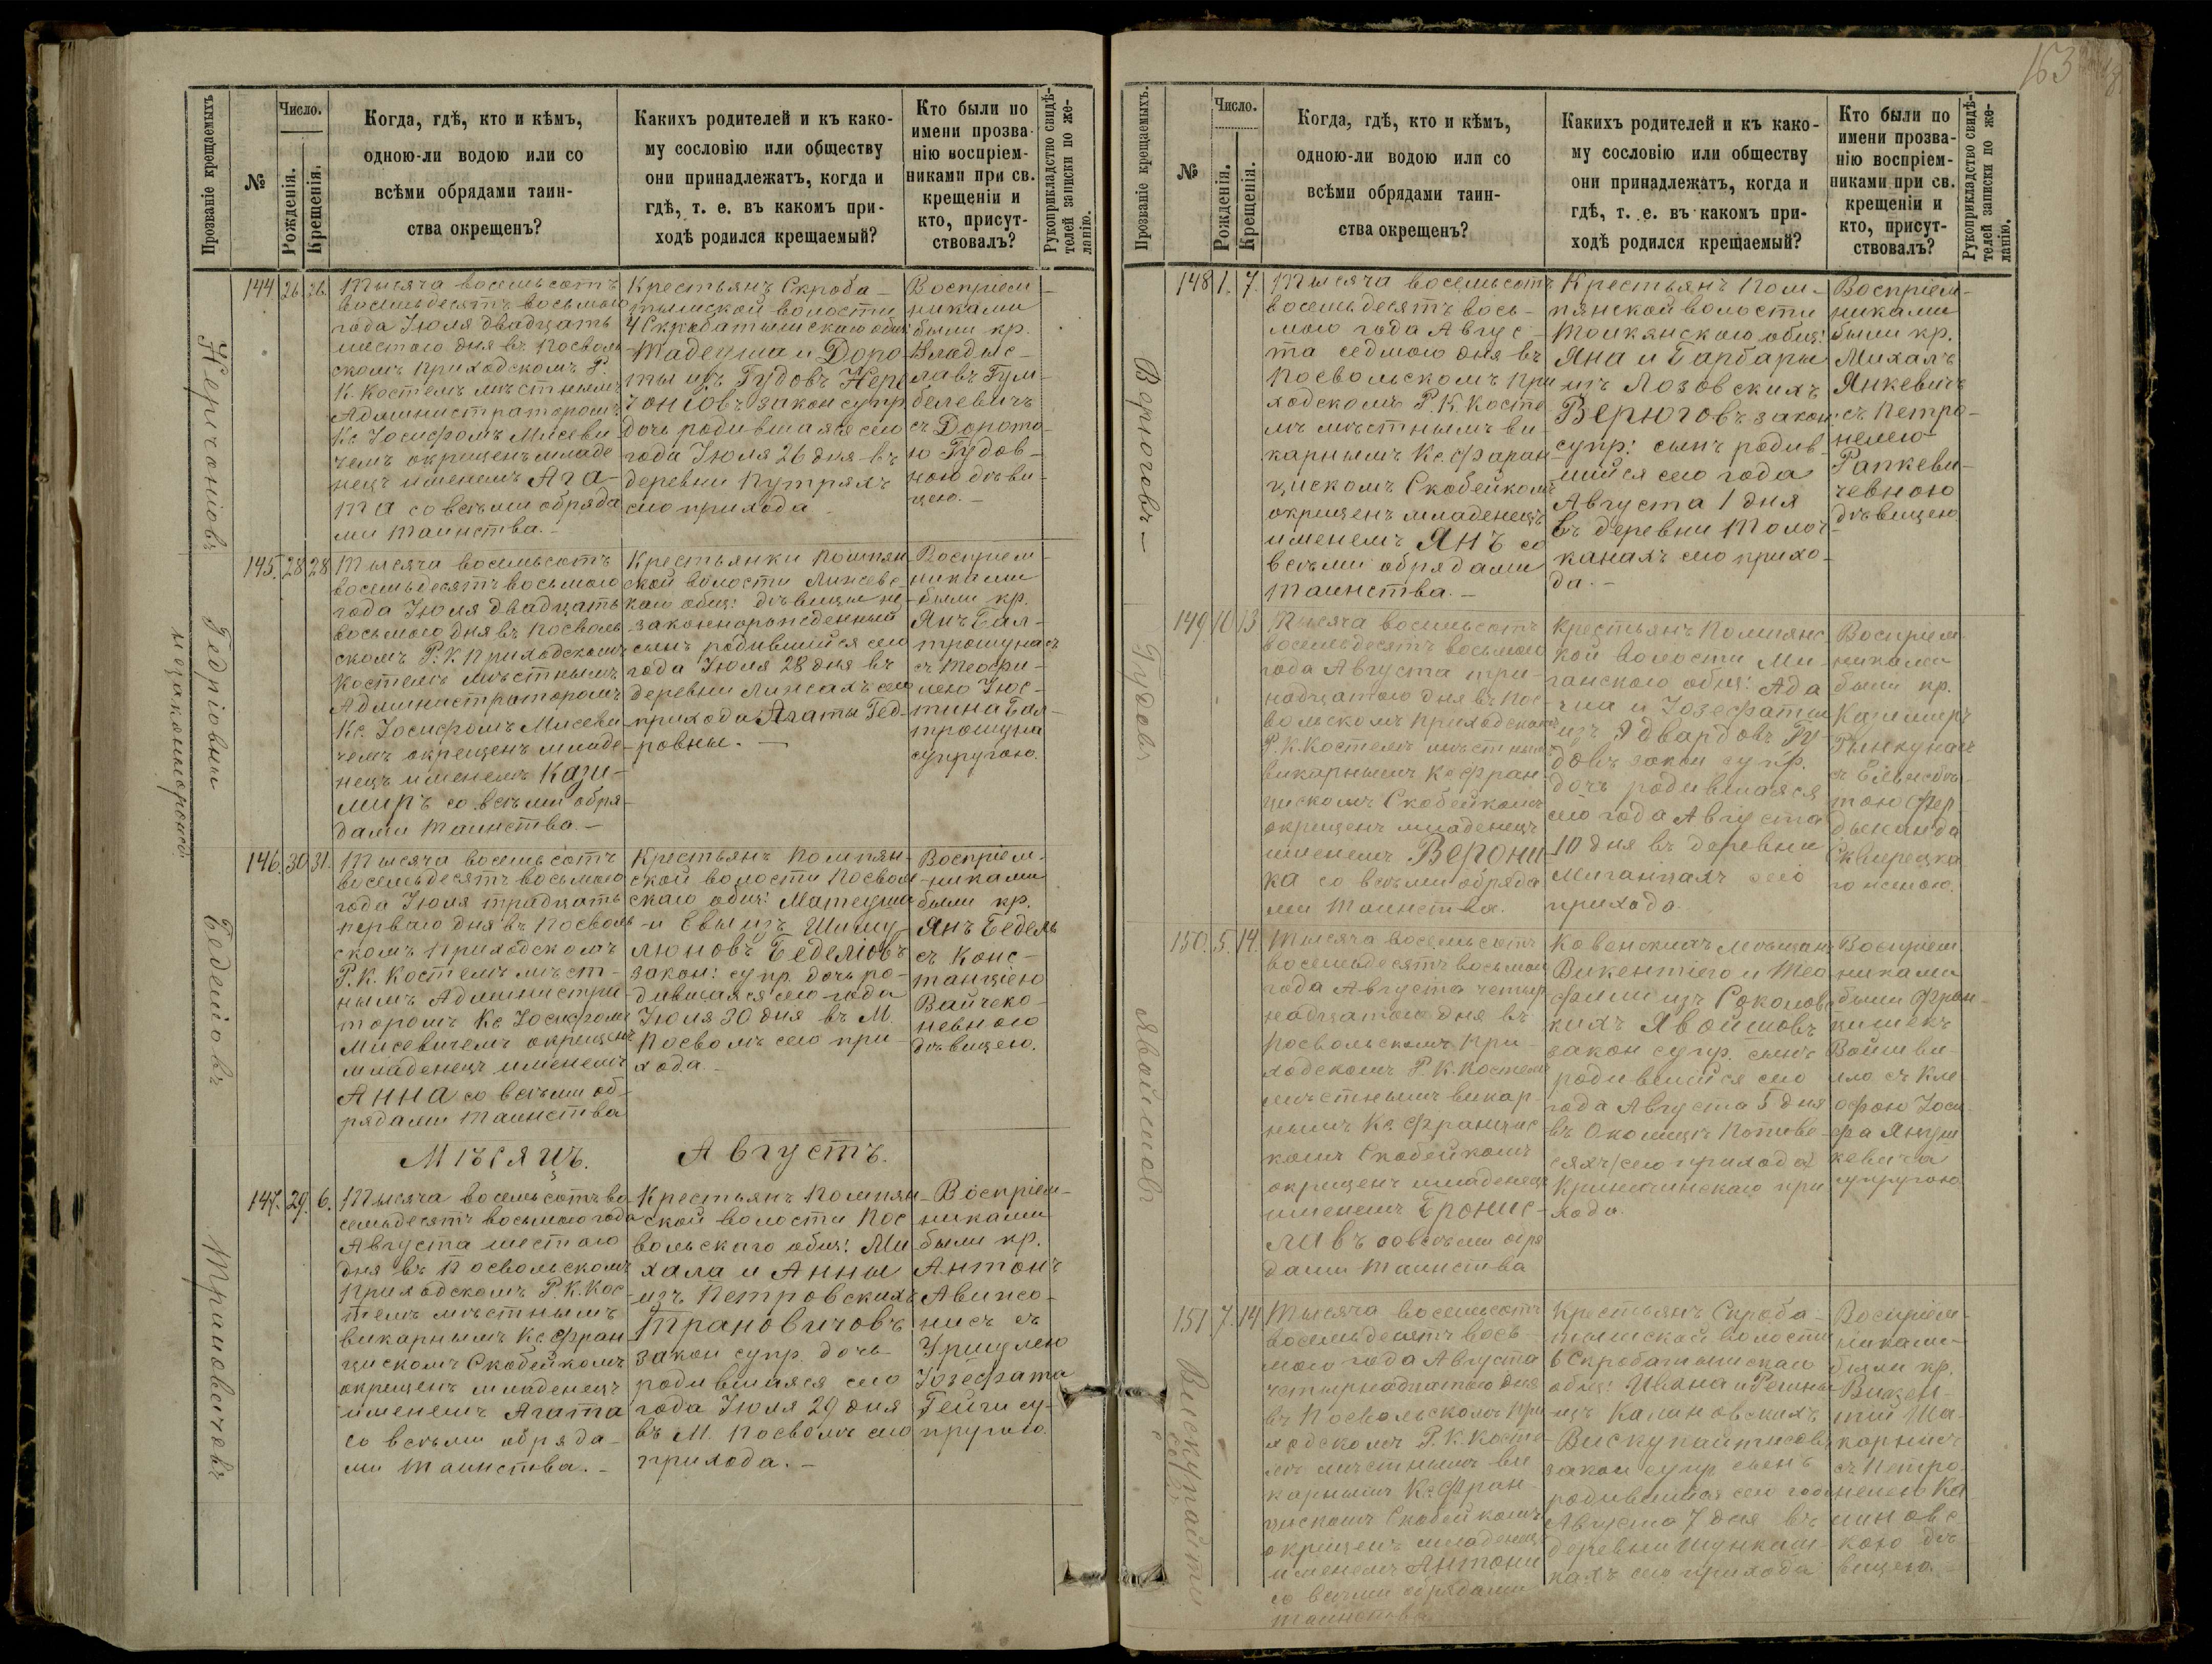 Прозваніе крещаемыхъ
№
Число.
Рожденія.
Крещенія.
Когда, гдѣ, кто и кѣмъ,
одною-ли водою или со
всѣми обрядами таин-
ства окрещенъ?
Какихъ родителей и къ како-
му сословію или обществу
они принадлежатъ, когда и
гдѣ, т. е. въ какомъ при-
ходѣ родился крещаемый?
Кто были по
имени прозва-
нію воспріем-
никами при св.
крещеніи и
кто, присут-
ствовалъ?
Рукоприкладство свидѣ-
телей записки по же-
ланію.
144 26 26.
Тысяча восемьсотъ
восемьдесятъ восьмого
года Іюля двадцать
шестаго дня въ Посволь
скомъ Приходскомъ Р.
К. Костелѣ мѣстнымъ
Администраторомъ
Кс. Іосифомъ Мисеви
чемъ окрещенъ младе
нецъ именемъ Ага-
та со всѣми обряда
ми таинства. -
Крестьянъ Скроба-
тышской волости
Тадеуша и Доро
ты изъ Гудовъ
законъ супр
дочь родившаяся сего
года Іюля 26 дня въ
деревни Путряхъ
сего прихода
Воспріем
никами
были кр.
Владис-
лавъ
съ Дорото
ю Гудов-
ною дѣви
цею. -
145. 28 28
Тысяча восемьсотъ
восемьдесятъ восьмого
года Іюля двадцать
восьмого дня въ Посволь
скомъ Р. К. Приходскомъ
Костелѣ мѣстнымъ
Администраторомъ
Кс. Іосифомъ Мисеви
чемъ окрещенъ младе-
нецъ именемъ Кази-
миръ со всѣми обря-
дами таинства. -
Крестьянки Помпян
ской волости
каго общ: дѣвицы не-
законнорожденный
сынъ родившійся сего
года Іюля 28 дня въ
деревни сего
прихода Агаты Гед-
ровны. -
Воспріем-
никами
были кр.
Янъ Бал-
трошунасъ
съ Теофи-
лею Юс-
тина Бал-
трошуна
супругою.
146. 30 31.
Тысяча восемьсотъ
восемьдесятъ восьмого
года Іюля тридцать
перваго дня въ Посволь
скомъ Приходскомъ
Р. К. Костелѣ мѣст-
нымъ Администра
торомъ Кс Іосифомъ
Мисевичемъ окрещенъ
младенецъ именемъ
Анна со всѣми об-
рядами таинства
Крестьянъ Помпян-
ской волости Посволь
скаго общ: Матеуша
и Евы изъ
законъ: супр. дочь ро-
дившаяся сего года
Іюля 30 дня въ М.
Посволѣ сего при-
хода. -
Воспріем-
никами
были кр.
Янъ Бедель
съ Конс-
танціею
Вайчеко-
невною
дѣвицею.
Мѣсяцъ. Августъ.
147. 29 6.
Тысяча восемьсотъ во
семьдесятъ восьмого года
Августа шестого
дня въ Посвольскомъ
Приходскомъ Р. К. Кос-
телѣ мѣстнымъ
викарнымъ Кс Фран
цискомъ Скобейкомъ
окрещенъ младенецъ
именемъ Агата
со всѣми обряда-
ми таинства. -
Крестьянъ Помпян-
ской волости Пос
вольскаго общ: Ми
хала и Анны
изъ Петровскихъ
Трановичовъ
закон супр. дочь
родившаяся сего
года Іюля 29 дня
въ М. Посволѣ сего
прихода. -
Воспріем-
никами
были кр.
Антонъ
Авижо-
нисъ съ
Уршулею
Іозефата
Гейги су-
пругою.
163
Прозваніе крещаемыхъ.
№
Число.
Рожденія.
Крещенія.
Когда, гдѣ, кто и кѣмъ,
одною-ли водою или со
всѣми обрядами таин-
ства окрещенъ?
Какихъ родителей и къ како-
му сословію или обществу
они принадлежатъ, когда и
гдѣ, т. е. въ какомъ при-
ходѣ родился крещаемый?
Кто были по
имени прозва-
нію воспріем-
никами при св.
крещеніи и
кто, присут-
ствовалъ?
Рукоприкладство свидѣ-
телей записки по же-
ланію.
Верюговъ -
148 1. 7.
Тысяча восемьсотъ
восемьдесятъ вось-
мого года Авгус-
та седмого дня въ
Посвольскомъ При
ходскомъ Р. К. Косте
лѣ мѣстнымъ ви
карнымъ Кс. Фран
цискомъ Скобейкомъ
окрещенъ младенецъ
именемъ Янъ со
всѣми обрядами
таинства. -
Крестьянъ Пом-
пянской волости
общ:
Яна и Барбары
изъ Лозовскихъ
Верюговъ закон:
супр: сынъ родив-
шійся сего года
Августа 1 дня
въ деревни Толоч-
канахъ сего прихо-
да. -
Воспріем-
никами
были кр.
Михалъ
Янкевичъ
съ Петро-
нелею
Рапкеви-
чевною
дѣвицею
Гудовъ
149 10 13
Тысяча восемьсотъ
восемьдесятъ восьмого
года Августа три-
надцатого дня въ Пос-
вольскомъ Приходскомъ
Р. К. Костелѣ мѣстнымъ
викарнымъ Кс Фран
цискомъ Скобейкомъ
окрещенъ младенецъ
именемъ Верони-
ка со всѣми обряда
ми таинства.
Крестьянъ Помпянс
кой волости Ми-
ганскаго общ: Ада
ма и Іозефаты
изъ Эдвардовъ Гу-
довъ закон супр.
дочь родившаяся
сего года Августа
10 дня въ деревни
сего
прихода.
Воспріем
никами
были кр.
Казимиръ
съ Ельжбѣ-
тою Фер
дынанда
женою.
150. 5. 14.
Тысяча восемьсотъ
восемьдесятъ восьмого
года Августа четыр
надцатого дня въ
Посвольскомъ При-
ходскомъ Р. К. Костелѣ
мѣстнымъ викар-
нымъ Кс Францис
комъ Скобейкомъ
окрещенъ младенецъ
именемъ Бронис-
лавъ со всѣми обря
дами таинства
Ковенскихъ мѣщанъ
Викентіего и Тео
фили изъ Соколовс
кихъ Явойшовъ
закон супр. сынъ
родившійся сего
года Августа 5 дня
въ Околицѣ
сего прихода
при
хода.
Воспріем.
никами
были Фран-
цишекъ
Войшви-
ло съ Кле
офою Іоси
фа Януш
кевича
супругою
151 7. 14
Тысяча восемьсотъ
восемьдесятъ вось-
мого года Августа
четырнадцатого дня
въ Посвольскомъ При
ходскомъ Р. К. Косте-
лѣ мѣстнымъ ви
карнымъ Кс Фран
цискомъ Скобейкомъ
окрещенъ младенецъ
именемъ Антони
со всѣми обрядами
таинства.
Крестьянъ Скроба-
тышской волости
общ: Ивана и Регины
изъ Калиновскихъ
закон супр сынъ
родившійся сего года
Августа 7 дня въ
деревни
сего прихода
Воспріем-
никами
были кр.
Викен-
тій
съ Петро
нелею Ка
линовс
кою дѣ
вицею. -